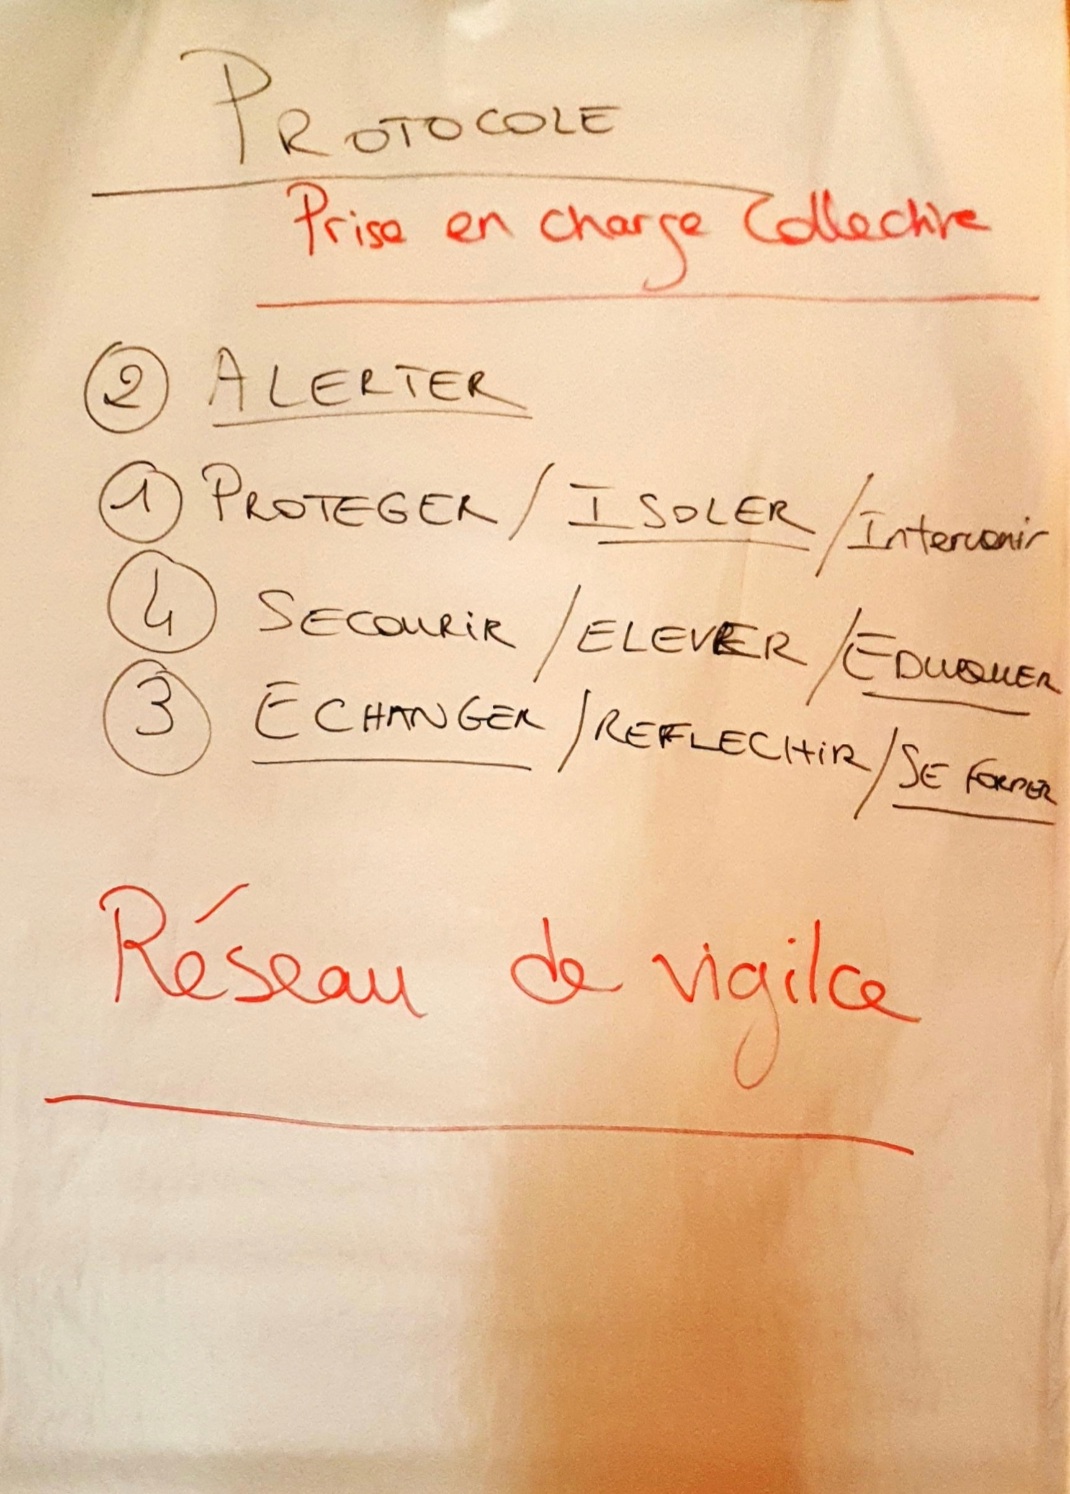 PROTOCOLE
Prise en charge Collective
2 ALERTER
1 PROTEGER / ISOLER / Intervenir
4 SECOURIR / ELEVER / EDUQUER
3 ECHANGER / REFLECHIR / SE FORMER
Réseau de vigilce